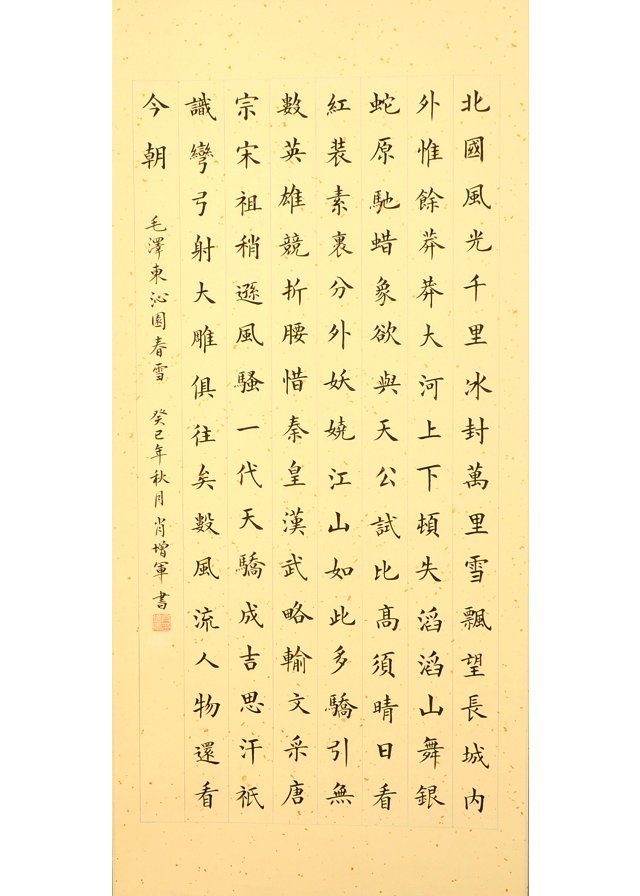 北國風光千里冰封萬里雪飄望長城内
外惟餘莽莽大河上下頓失滔滔山舞銀
蛇原馳蜡象欲與天公試比高須晴日看
紅装素裹分外妖嬈江山如此多驕引無
數英雄競折腰惜秦皇漢武略輸文采唐
宗宋祖稍遜風騷一代天驕成吉思汗祇
識彎弓射大雕俱往矣數風流人物還看
今朝 毛澤東沁園春雪 癸巳年秋月肖增軍書